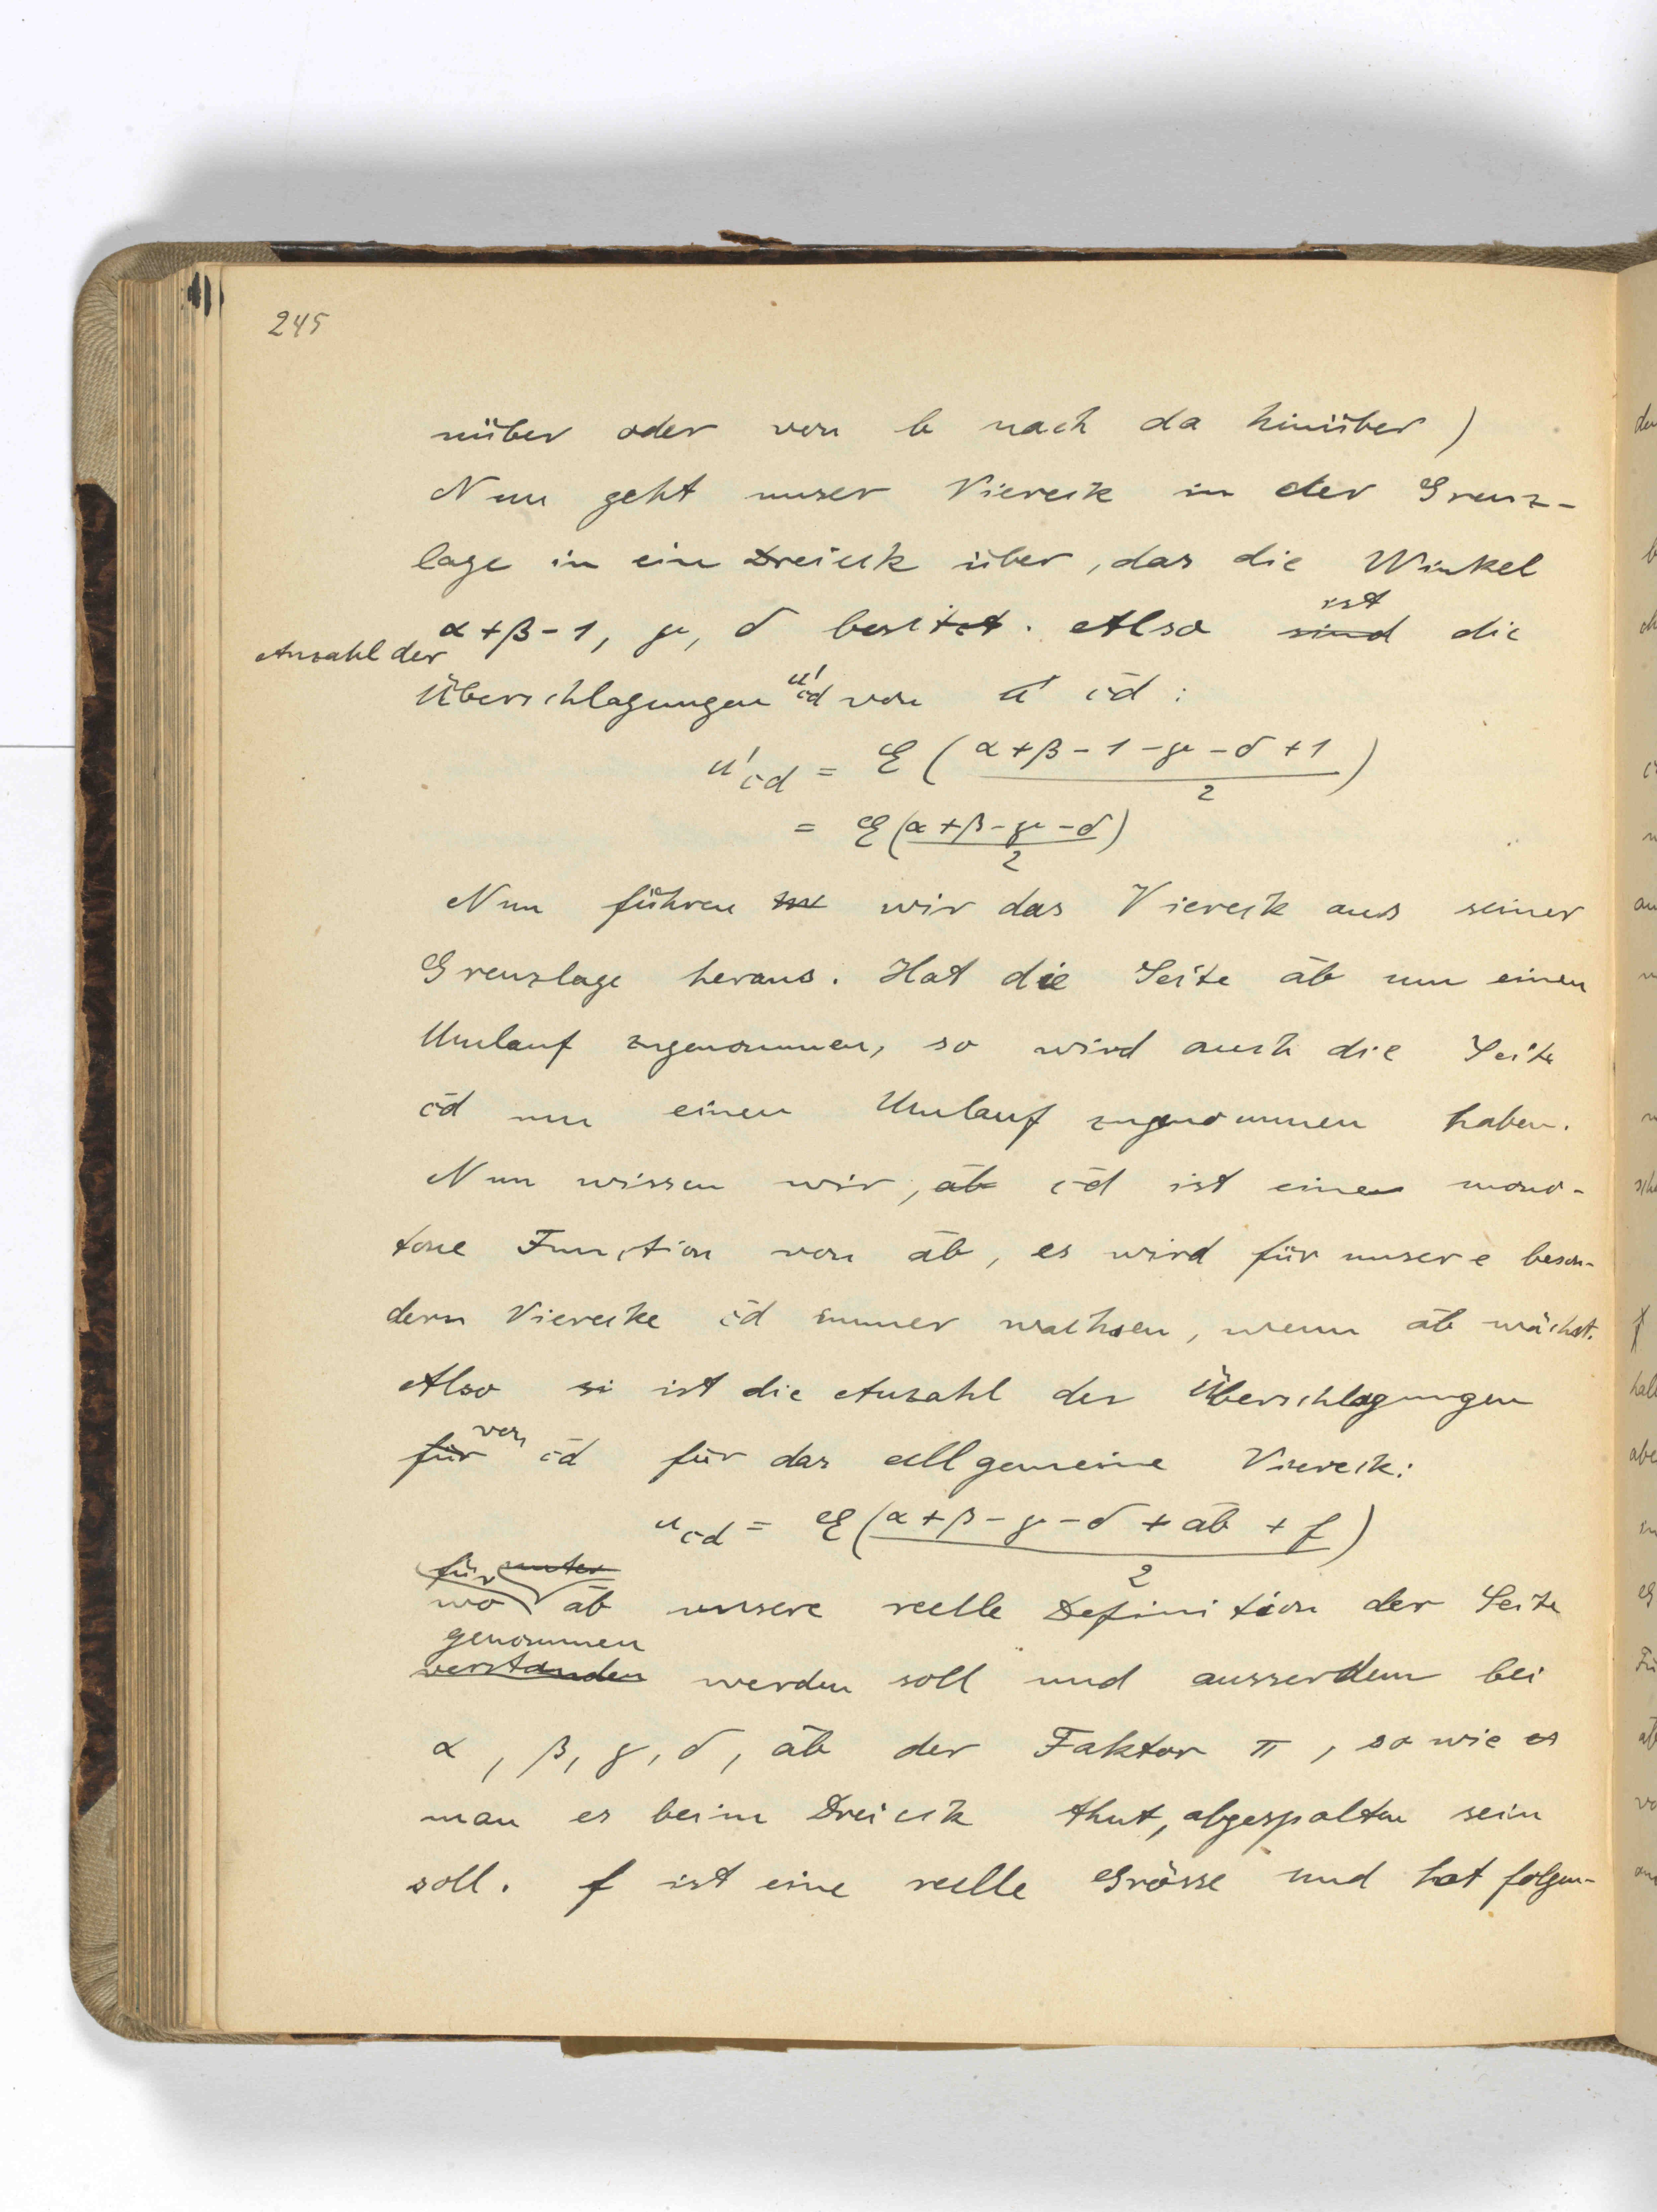 245
nüber oder von b nach da hinüber)
Nun geht unser Viereck in der Grenz-
lage in ein Dreieck über, das die Winkel
α+β-1, γ, δ besitzt. Also sind ist die
Anzahl der
Überschlagungen u'c̄d von u' c̄d:
u'c̄d = E(α+β-1-γ-δ+1 / 2)
= E(α+β-γ-δ / 2)
Nun führen wir das Viereck aus seiner
Grenzlage heraus. Hat die Seite āb um einen
Umlauf zugenommen, so wird auch die Seite
c̄d um einen Umlauf zugenommen haben.
Nun wissen wir, āb c̄d ist eine mono-
tone Function von āb, es wird für unsere beson-
dern Vierecke c̄d immer wachsen, wenn āb wächst.
Also si ist die Anzahl der Überschlagungen
für von c̄d für das allgemeine Viereck:
uc̄d = E(α+β-γ-δ+āb+f / 2)
für unter
wo āb unsere reelle Definition der Seite
genommen
verstanden werden soll und ausserdem bei
α, β, γ, δ, āb der Faktor π, so wie es
man es beim Dreieck thut, abgespalten sein
soll. f ist eine reelle Grösse und hat folgen-